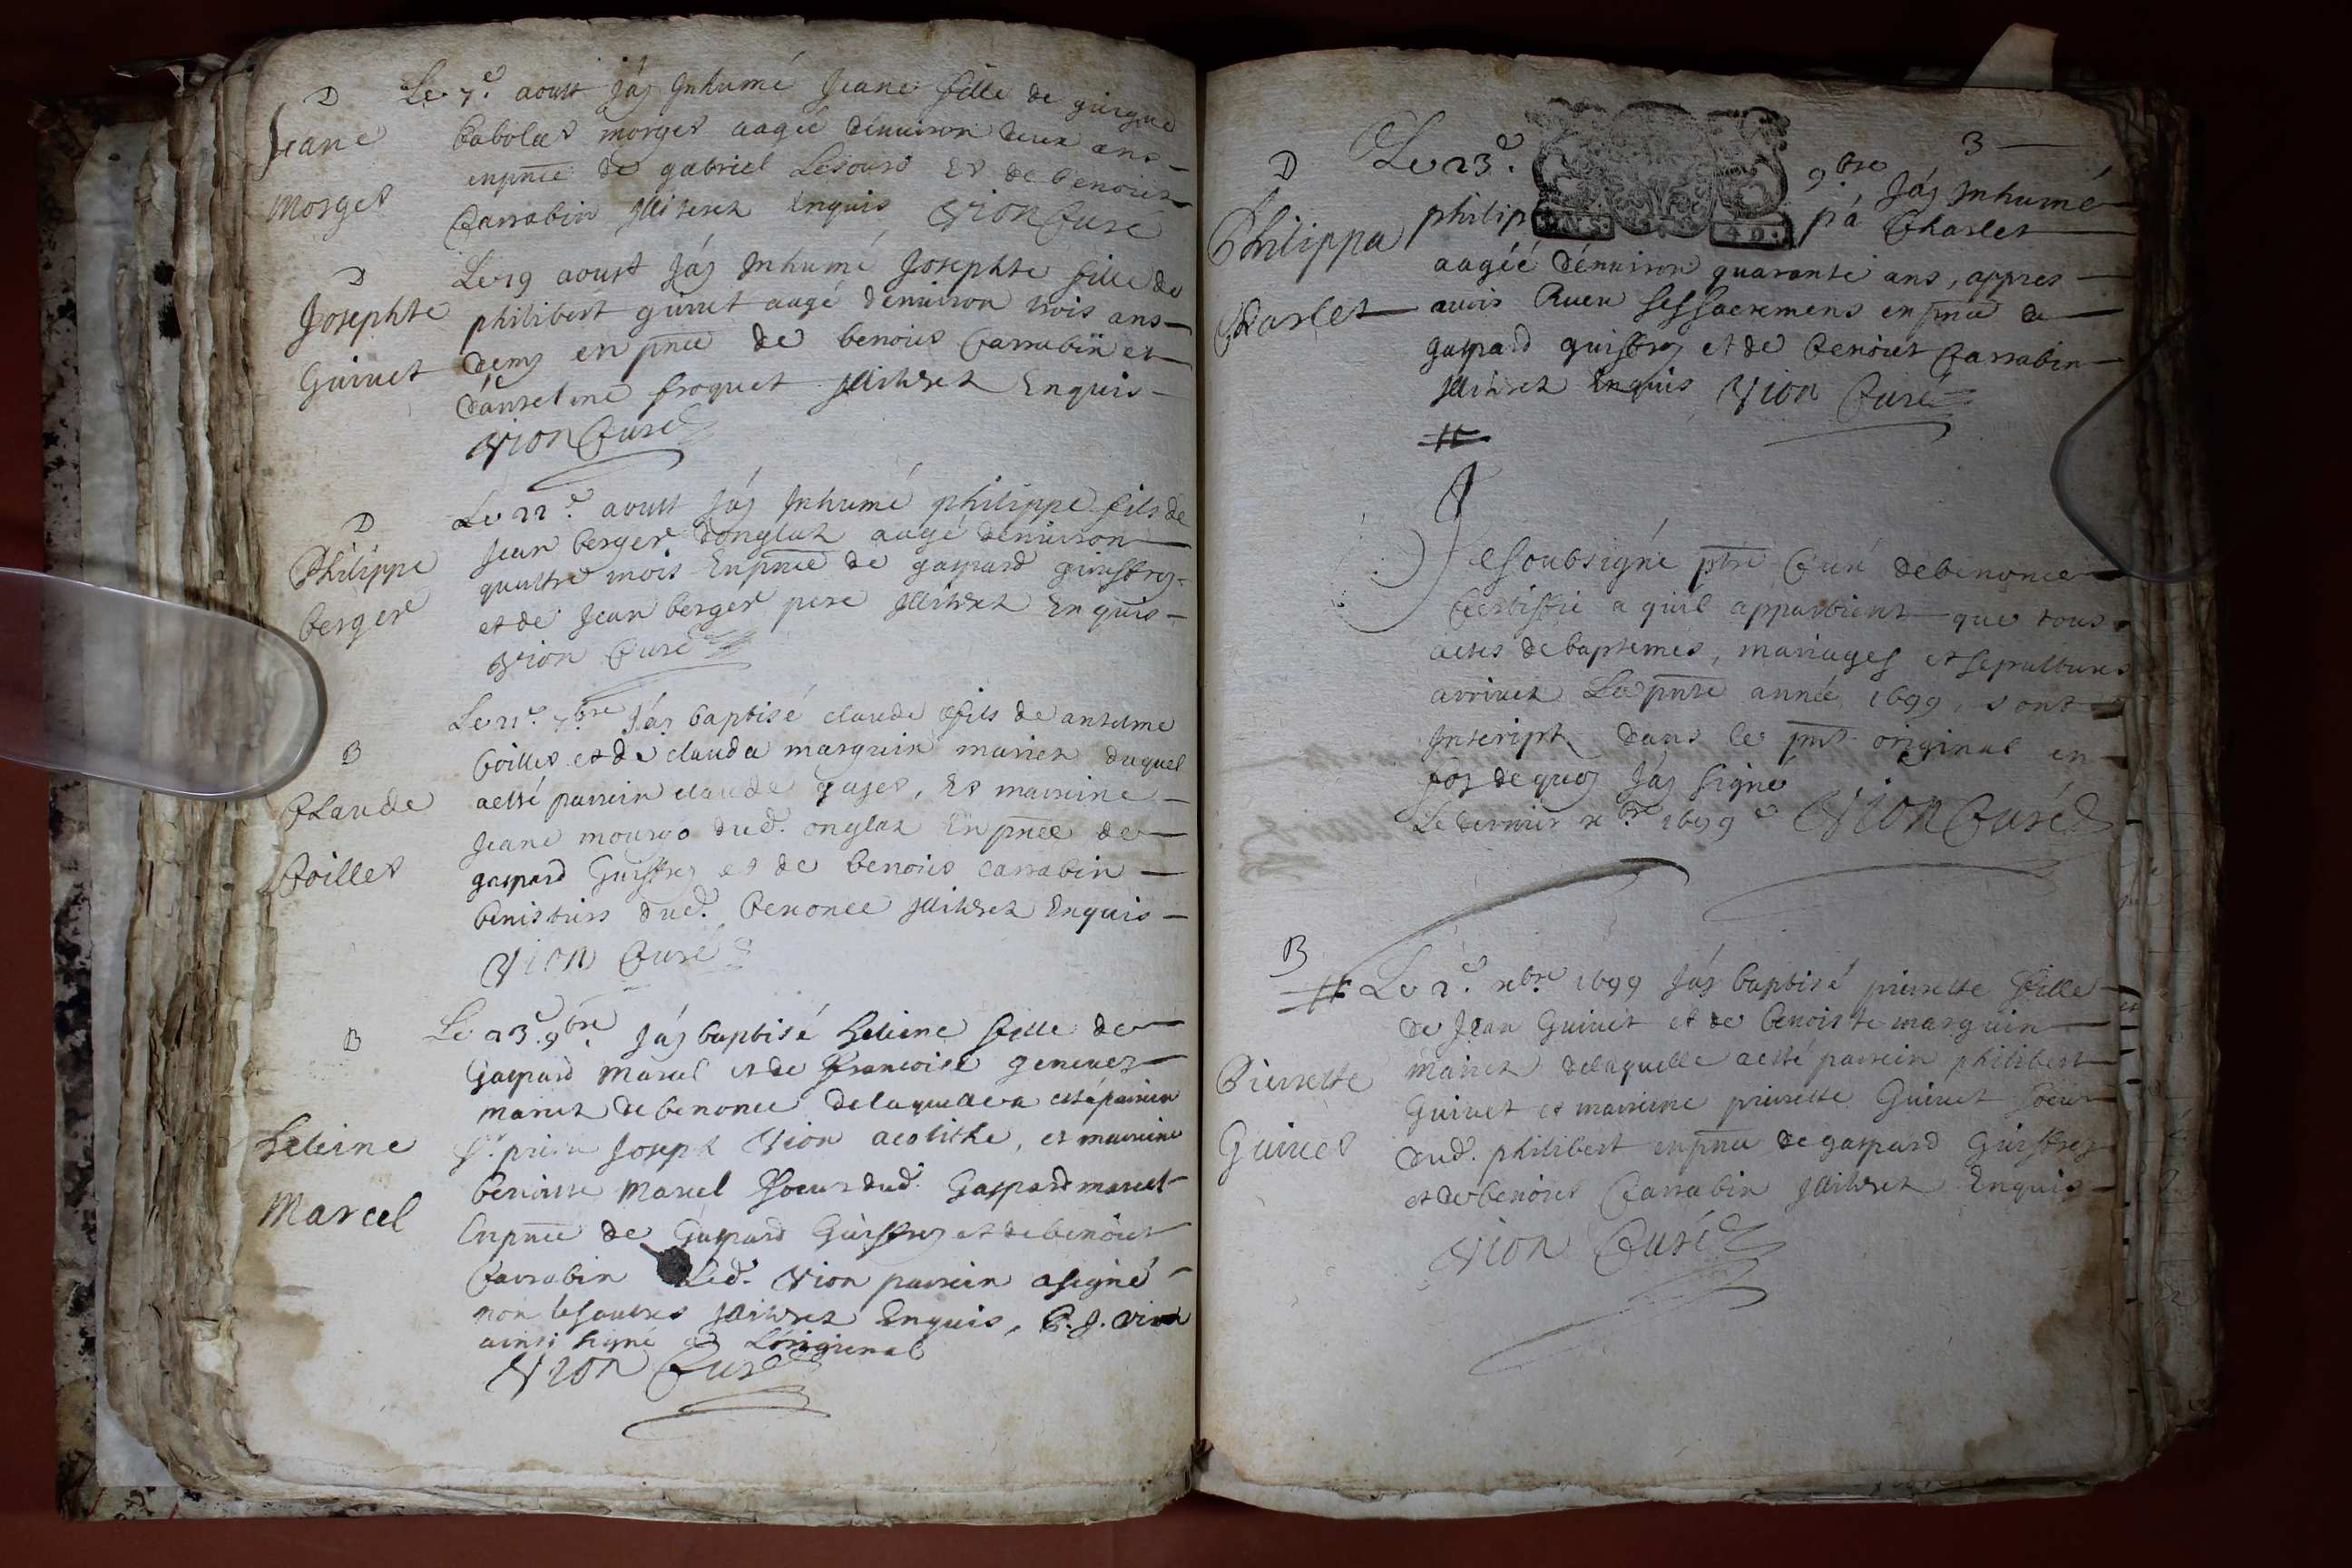 D
Jeane
Morget
Le 7e. aoust Jáy Inhumé Jeane fille de
morget aagée dénuiron deux ans
enpnce de gabriel Lesourd Et de benoict
Carrabin Illiterez Enquis Vion Curé
D
Josephte
Guinet
Le 19 aoust Jáy Inhumé Josephte fille de
philibert guinet aagé dénuiron trois ans
demy en pnce de benoict Carrabin et
d'anselme froquet Illiterez Enquis
Vion Curé
D
Philippe
berger
Le 22e. aoust Jáy Inhumé philippe fils de
Jean berger donglaz aagé dénuiron
quattre mois Enpnce de gaspard guiffrey
et de Jean berger pere Illiterez Enquis
Vion Curé
B
Claude
Coillet
Le 21e. 7bre Jáy baptisé claude fils de anselme
Coillet et de clauda marguin mariez duquel
aesté parrein claude gaget, Et marreine
Jeane dud. onglaz Enpnce de
gaspard Guiffrey et de benoict carrabin
dud. benonce Illiterez Enquis
Vion Curé
B
heleine
Marcel
Le 23e. 9bre. Jáy baptisé heleine fille de
Gaspard Marcel et de francoise
mariez de benonce delaquelle a esté parrein
Sr. Joseph Vion acolithe, et marreine
benoiste Marcel soeur dud. Gaspard marcel
Enpnce de Gaspard Guiffrey et de benoict
Carrabin Led. Vion parrein asigné
non les autres Illiterez Enquis, P. J. Vion
ainsi signé a Lóriginal
Vion Curé
3
D
Philippa
Charlet
Le 23e. 9bre Jáy Inhumé
philip pa Charlet
aagéé dénuiron quarante ans, appres
auoir Receu ses sacremens enpnce de
gaspard guiffrey et de benoict Carrabin
Illiterez Enquis Vion Curé
Je soubsigné ptre Curé de benonce
Certiffie a quil appartient que tous
actes de baptemes, mariages et sepultures
arriuez La pnte année 1699, sont
Inscript dans le pnt original en
foy de quoy Jáy signé
Le dernier xbre 1699 Vion Curé
B
Pierrette
Guinet
Le 2e. xbre 1699 Jáy baptisé pierrette fille
de Jean Guinet et de benoiste marguin
mariez delaquelle aesté parrein philibert
Guinet et marreine pierrette Guinet soeur
dud. philibert enpnce de gaspard Guiffrey
et de benoict Carrabin Illiterez Enquis
Vion Curé